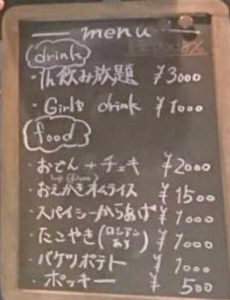 menu
drink
・1h 飲み放題 ¥3000
・Girls drink ¥1000
food
・おでん+チェキ ¥2000
・おえかきオムライス ¥1500
・スパイシーからあげ ¥1000
・たこやき(ロシアンあり) ¥1000
・バケツポテト ¥1000
・ポッキー ¥500